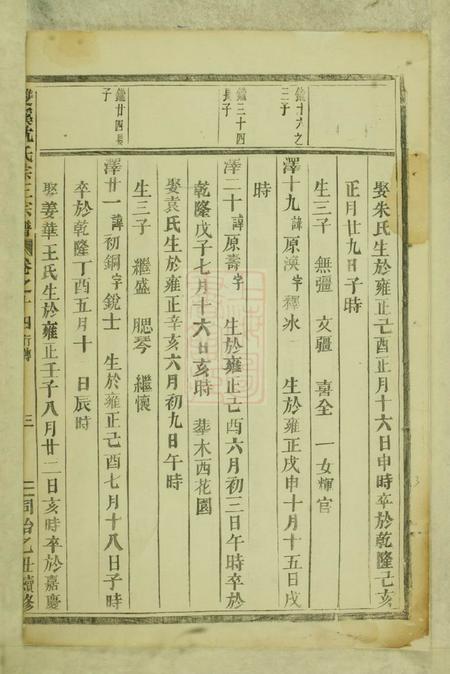 娶朱氏生於雍正己酉正月十六日申時卒於乾隆己亥
正月廿九日子時
生三子 無疆 文疆 喜全 一女輝官
鑑十六之
三子
澤十九諱原渙字釋冰 生於雍正戊申十月十五日戌
時
鑑三十四
長子
澤二十諱原壽字 生於雍正己酉六月初三日午時卒於
乾隆戊子七月十六日亥時 葬木西花園
娶袁氏生於雍正辛亥六月初九日午時
生三子 繼盛 腮琴 繼懷
鑑廿四長
子
澤廿一諱初銅字銳士 生於雍正己酉七月十八日子時
卒於乾隆丁酉五月十 日辰時
娶姜華王氏生於雍正壬子八月廿二日亥時卒於嘉慶
雙溪沈氏宗譜 卷之十四行傳 三 同治乙丑續修